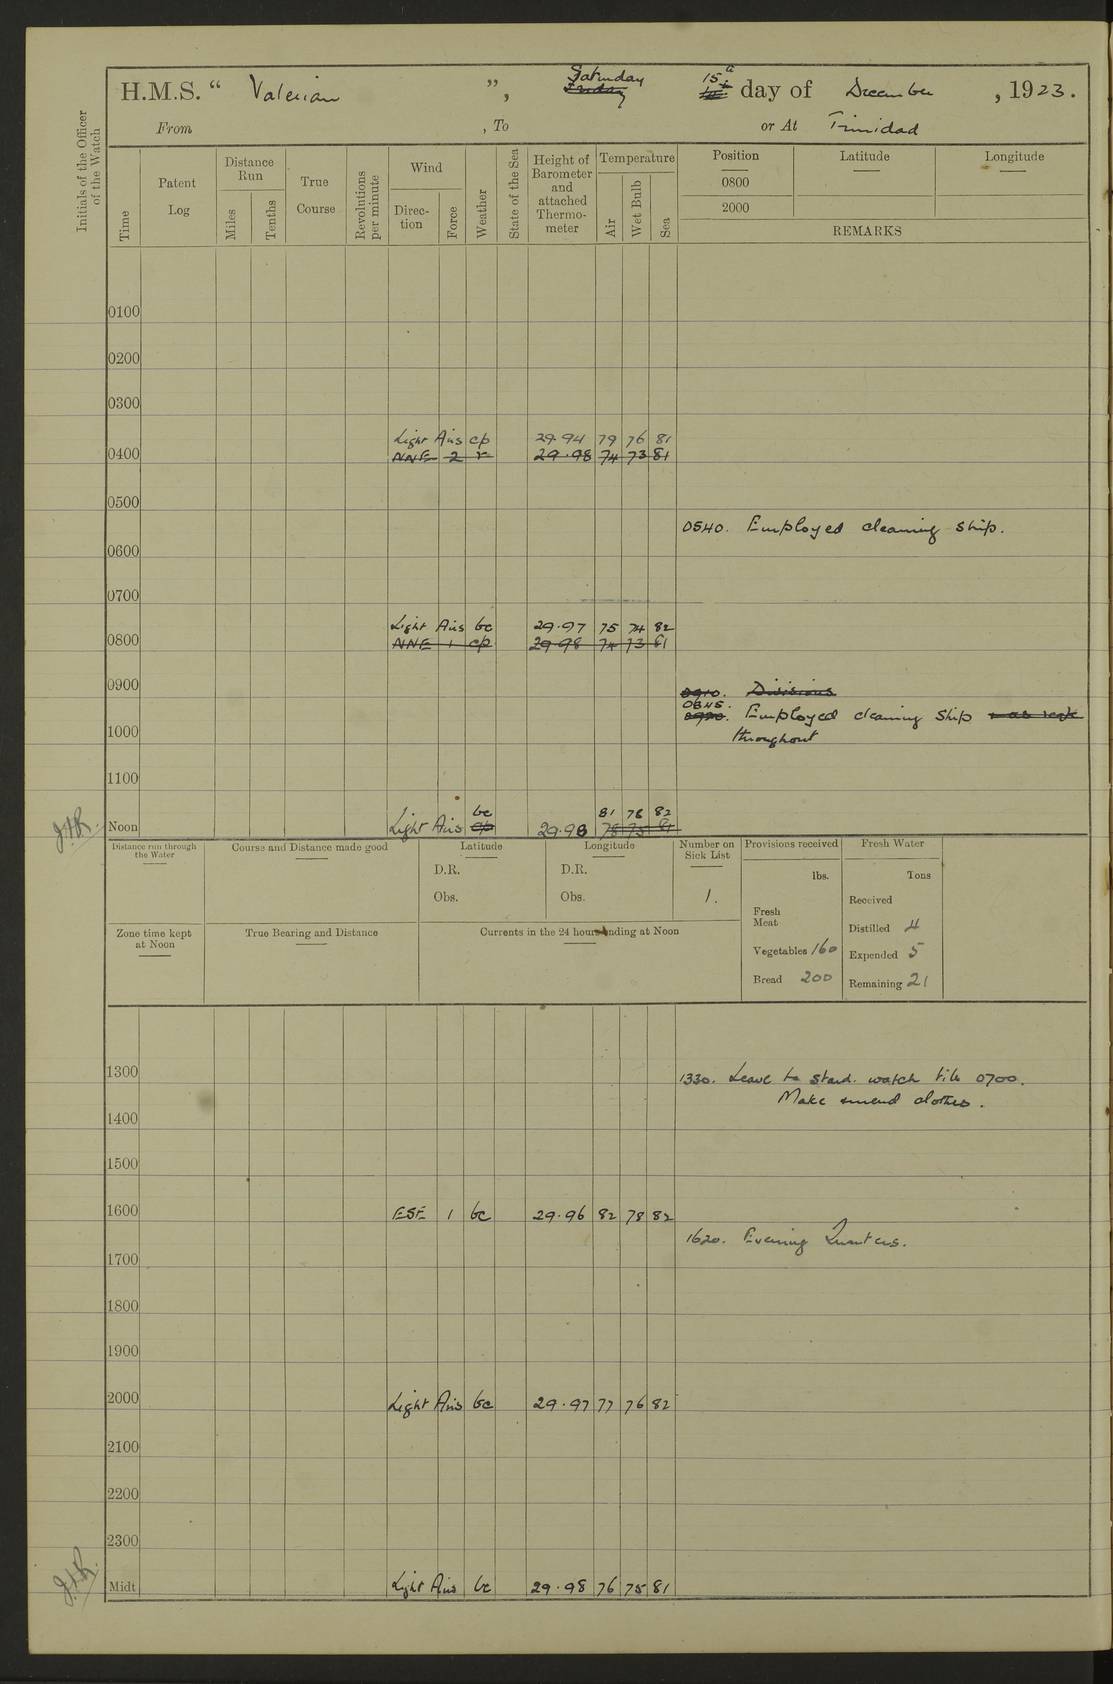 H.M.S. “ Valerian ”, Saturday 15th day of December, 1923.
Friday
From , To or At Trinidad
Initials of the Officer of the Watch
Time
Patent Log
Distance Run
Miles
Tenths
True Course
Revolutions per minute
Wind
Direction
Force
Weather
State of the Sea
Height of Barometer and attached Thermometer
Temperature
Air
Wet Bulb
Sea
Position
0800
2000
Latitude
Longitude
REMARKS
0100
0200
0300
Light Airs cp 29.94 79 76 81
0400 NNE 2 r 29.98 74 73 81
0500
0540. Employed cleaning ship.
0600
0700
Light Airs bc 29.97 75 74 82
0800 NNE 1 cp 29.98 74 73 81
0900
0910. Divisions
0845.
0920. Employed cleaning ship
throughout
1000
1100
bc 81 76 82
Noon Light Airs cp 29.98 78 75 81
Distance run through the Water
Course and Distance made good
Latitude
D.R.
Obs.
Longitude
D.R.
Obs.
Number on Sick List
1.
Provisions received
lbs.
Fresh Meat
Vegetables 160
Bread 200
Fresh Water
Tons
Received
Distilled 4
Expended 5
Remaining 21
Zone time kept at Noon
True Bearing and Distance
Currents in the 24 hours ending at Noon
1300
1330. Leave to starb. watch till 0700.
Make mend clothes.
1400
1500
1600 ESE 1 bc 29.96 82 78 82
1620. Evening Quarters.
1700
1800
1900
2000 Light Airs bc 29.97 77 76 82
2100
2200
2300
Midt Light Airs bc 29.98 76 75 81